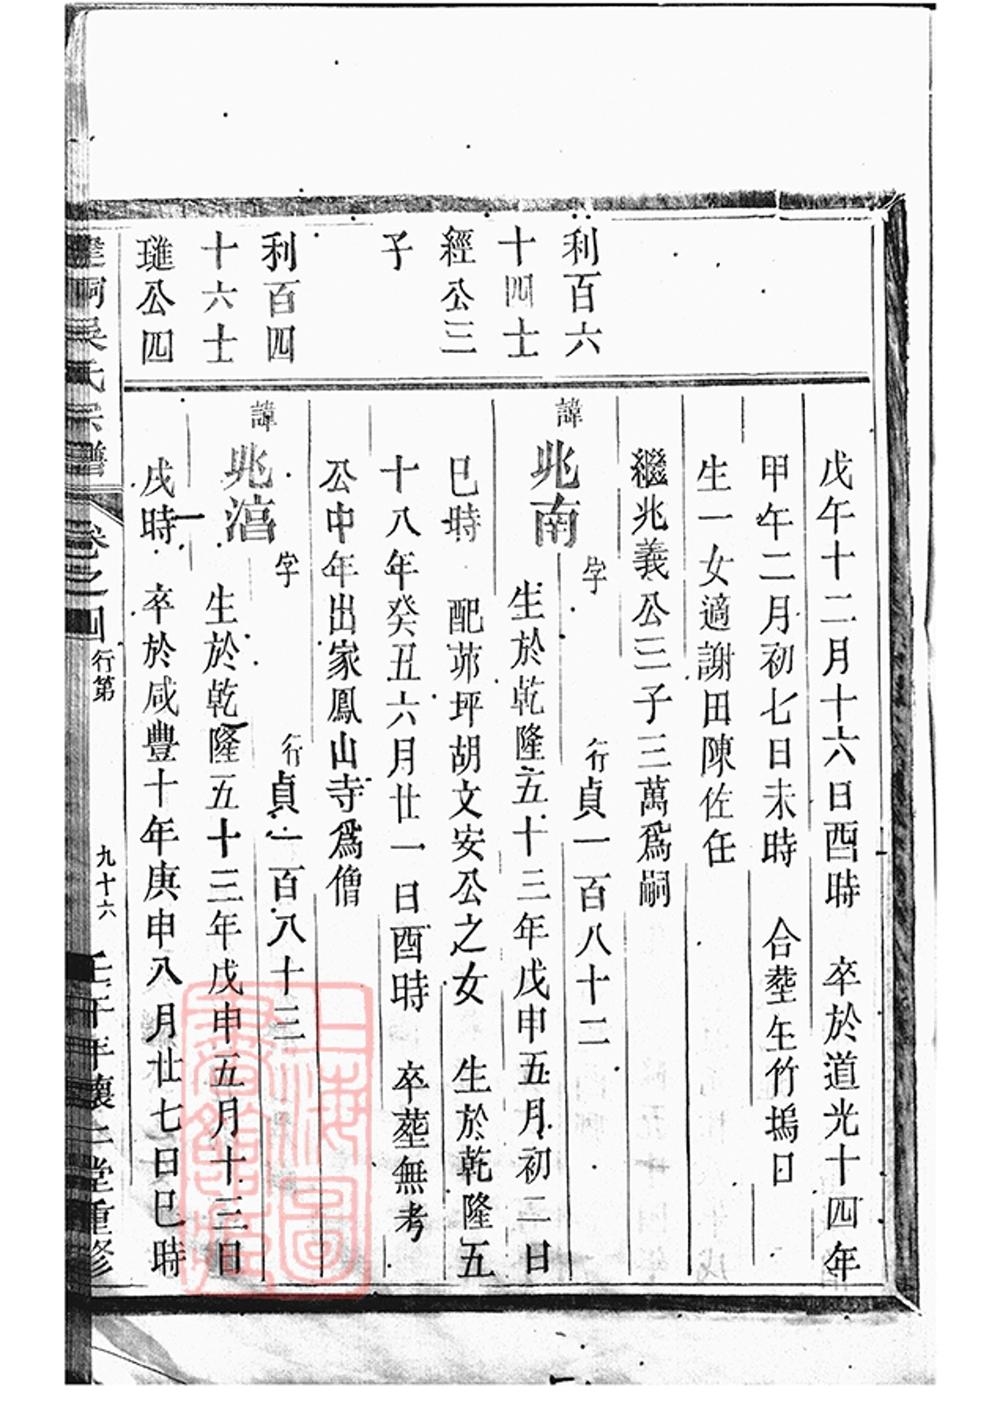 戊午十二月十六日酉時　卒於道光十四年
甲午二月初七日未時　合塟生竹塢口
生一女適謝田陳佐任
繼兆義公三子三萬爲嗣
利百六
十四士
經公三
子
諱兆南　字　行貞一百八十二
生於乾隆五十三年戊申五月初二日
巳時　配茆坪胡文安公之女　生於乾隆五
十八年癸丑六月廿一日酉時　卒塟無考
公中年出家鳳山寺爲僧
利百四
十六士
璡公四
諱兆湻　字　行貞一百八十三
生於乾隆五十三年戊申五月十三日
戌時　卒於咸豐十年庚申八月廿七日巳時
吳氏宗譜　卷之四　行第　九十六　壬午年懷二堂重修
上海圖
書館藏